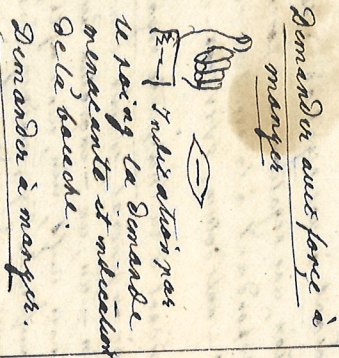 Demander avec force à
manger
Indication par
le poing la demande
menacante et indication
de la bouche.
Demander à manger.